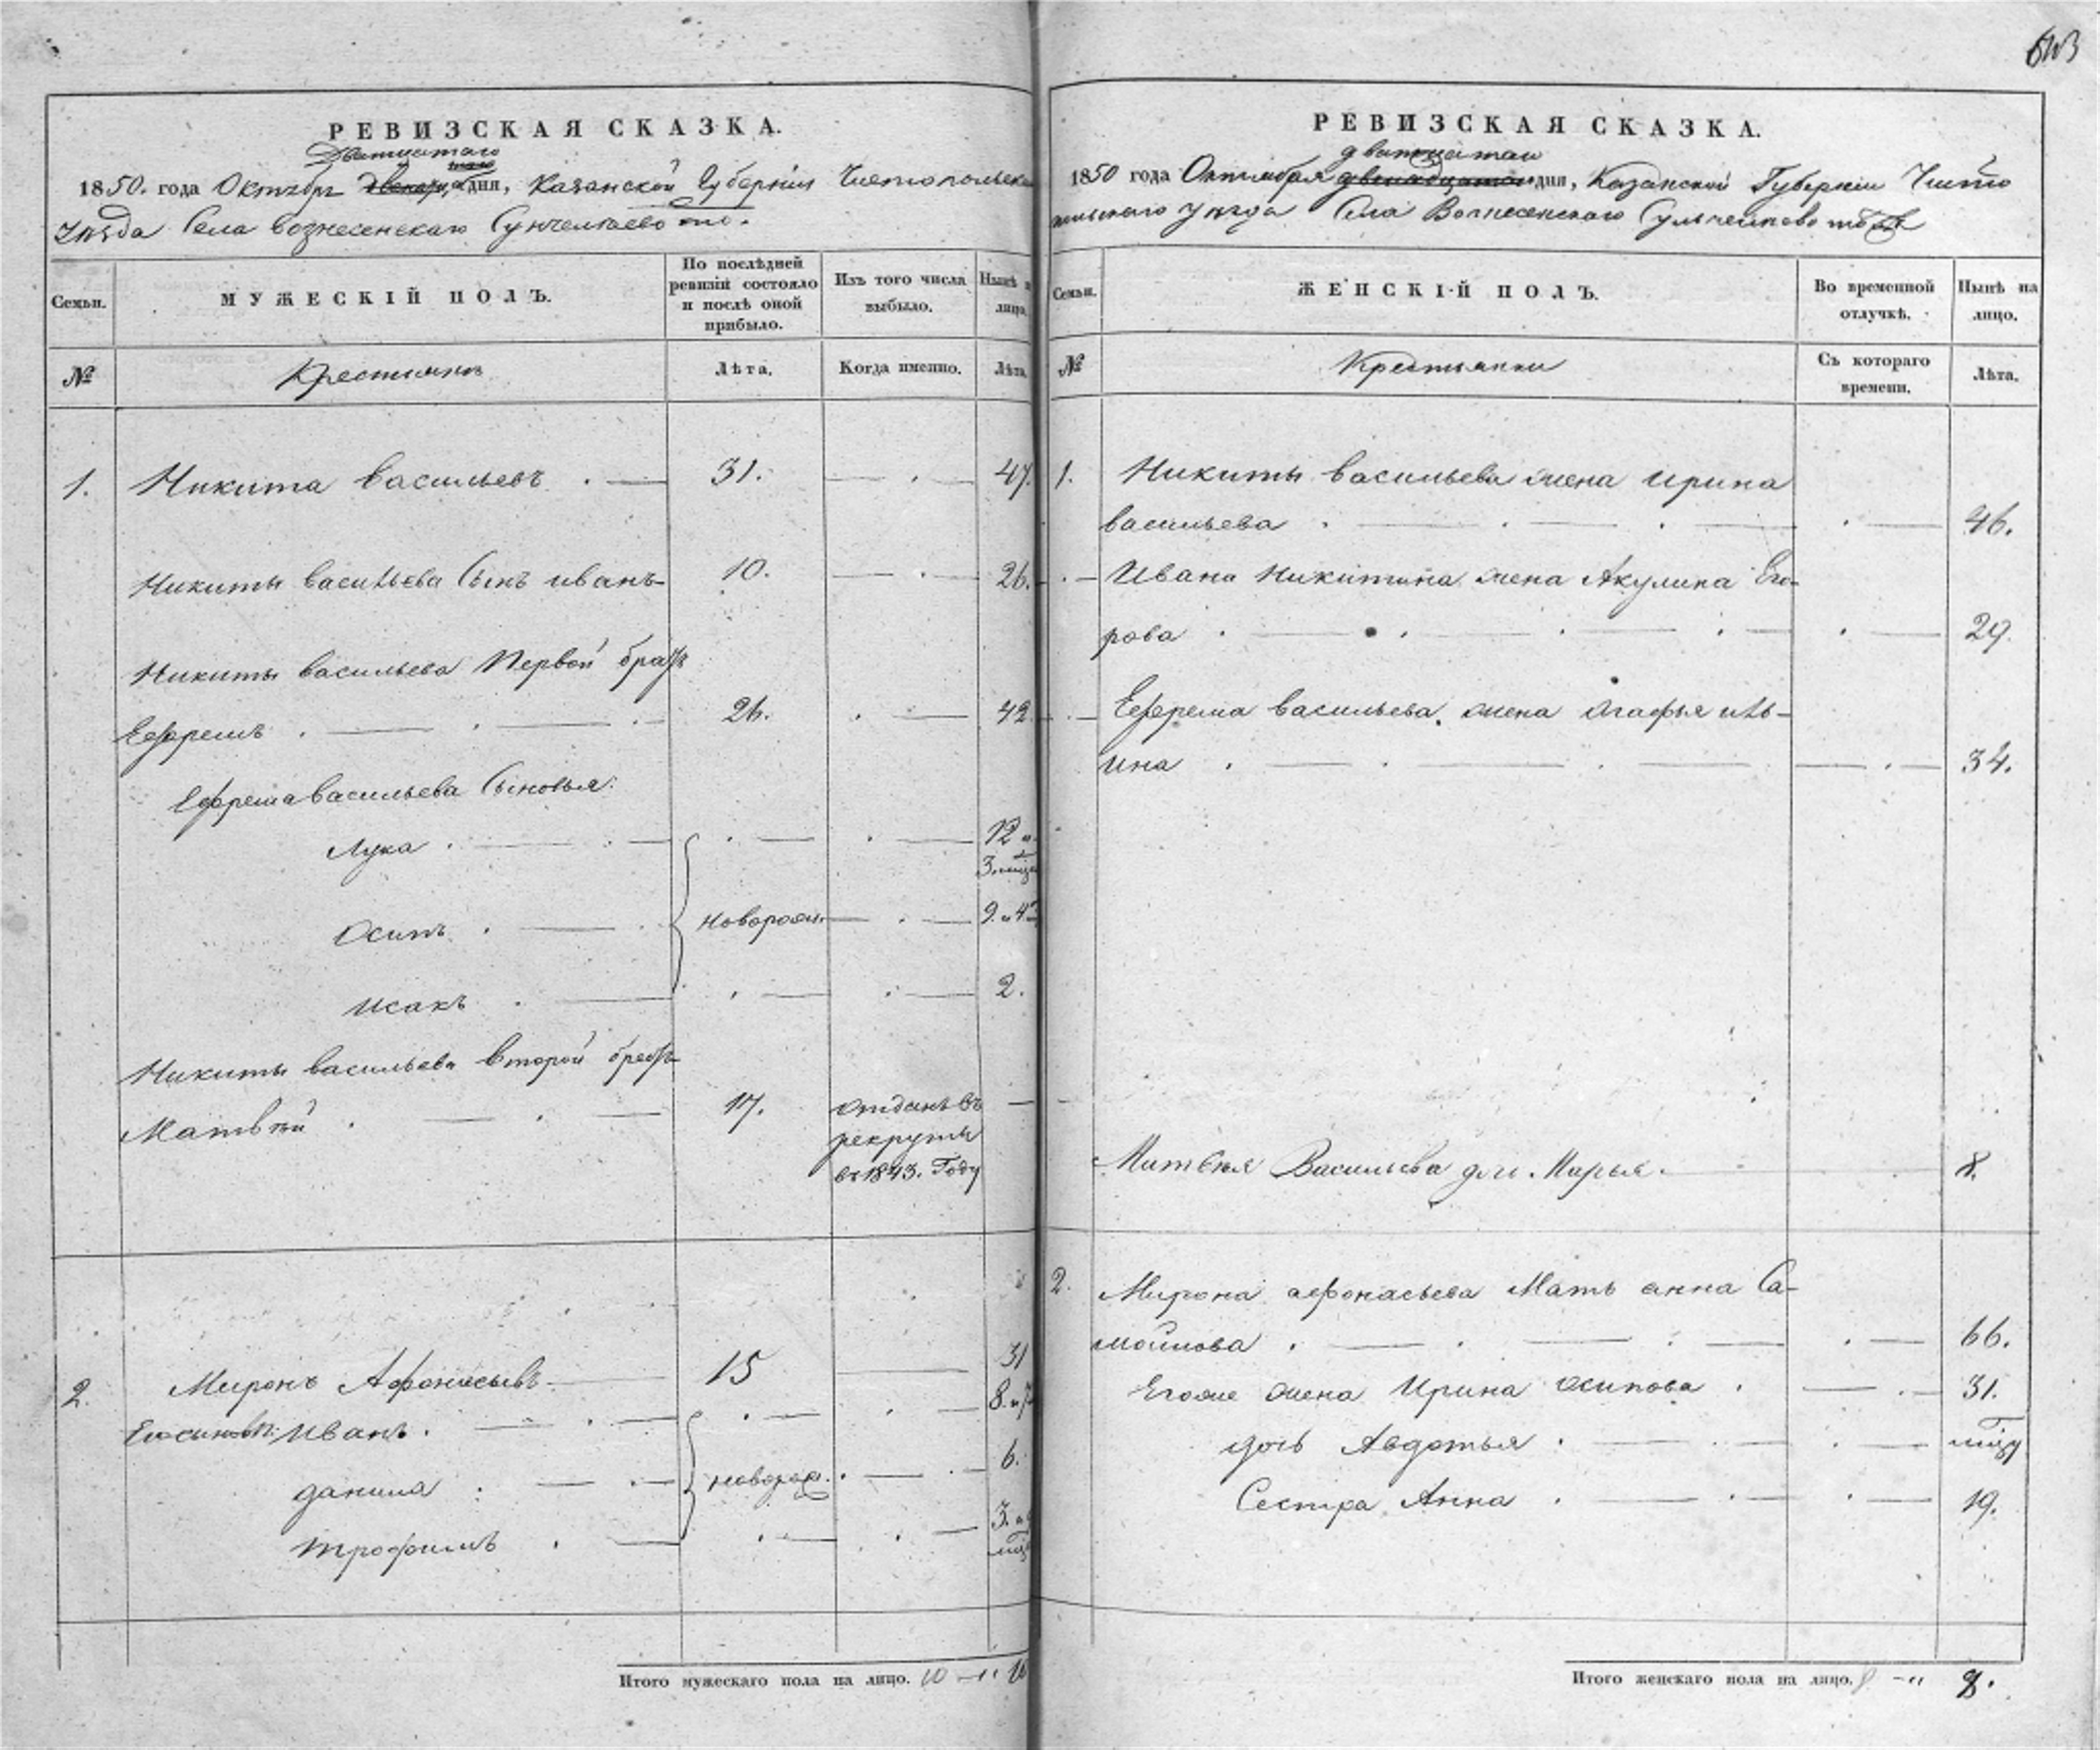 РЕВИЗСКАЯ СКАЗКА.
Дватцатаго
1850. года Октября дня, Казанской Губернiи Чистопольска
Уѣзда Села Вознесенскаго Сунчелеево то.
Семьи.
МУЖЕСКІЙ ПОЛЪ.
По послѣдней ревизіи состояло и послѣ оной прибыло.
Изъ того числа выбыло.
Нынѣ н лицо.
№
Крестьянъ
Лѣта.
Когда именно.
Лѣта.
1. Никита Васильевъ . — 31. — . — 47.
Никиты Васильева Сынъ иванъ 10. — . — 26.
Никиты Васильева Первой братъ
Ефремъ . — . — . — 26. . — 42.
Ефрема Васильева Сыновья:
Лука . — . — . — . — 12 и
3. мѣся
Осипъ . — .Новорож. — . — 9. и 4
Исакъ . — . — . — 2.
Никиты Васильева Второй братъ
Матвѣй . — . — 17. отданъ въ —
рекруты
въ 1843. Году
2. Миронъ Афонасьевъ — 15 — 31
Его сыновья: Иванъ . — . — . — . — 8. и 7
данила . — . — новорож. . — . — 6.
трофимъ . — . — . — 3. и
мѣс
Итого мужескаго пола на лицо. 10 — " 10
613
РЕВИЗСКАЯ СКАЗКА.
дватцатаго
1850 года Октября двенадцатого дня, Казанской Губернiи Чисто
польскаго уѣзда Села Вознесенскаго
Семьи.
ЖЕНСКІЙ ПОЛЪ.
Во временной отлучкѣ.
Нынѣ на лицо.
№
Крестьянки
Съ котораго времени.
Лѣта.
1. Никиты Васильева жена Ирина
Васильева . — . — . — . — 46.
. — Ивана Никитина жена Акулина Его-
рова . — . — . — . — . — 29.
. — Ефрема Васильева. жена Огафья иль-
ина . — . — . — — . — 34.
Матвѣя Васильева дочь Марья. 8.
2. Мирона афонасьева Мать анна Са-
мойлова . — . — . — . — 66.
Егоже жена Ирина Осипова . — . — 31.
дочь Авдотья . — . — . — мѣсяц
Сестра Анна . — . — . — 19.
Итого женскаго пола на лицо. 8 — " 8.